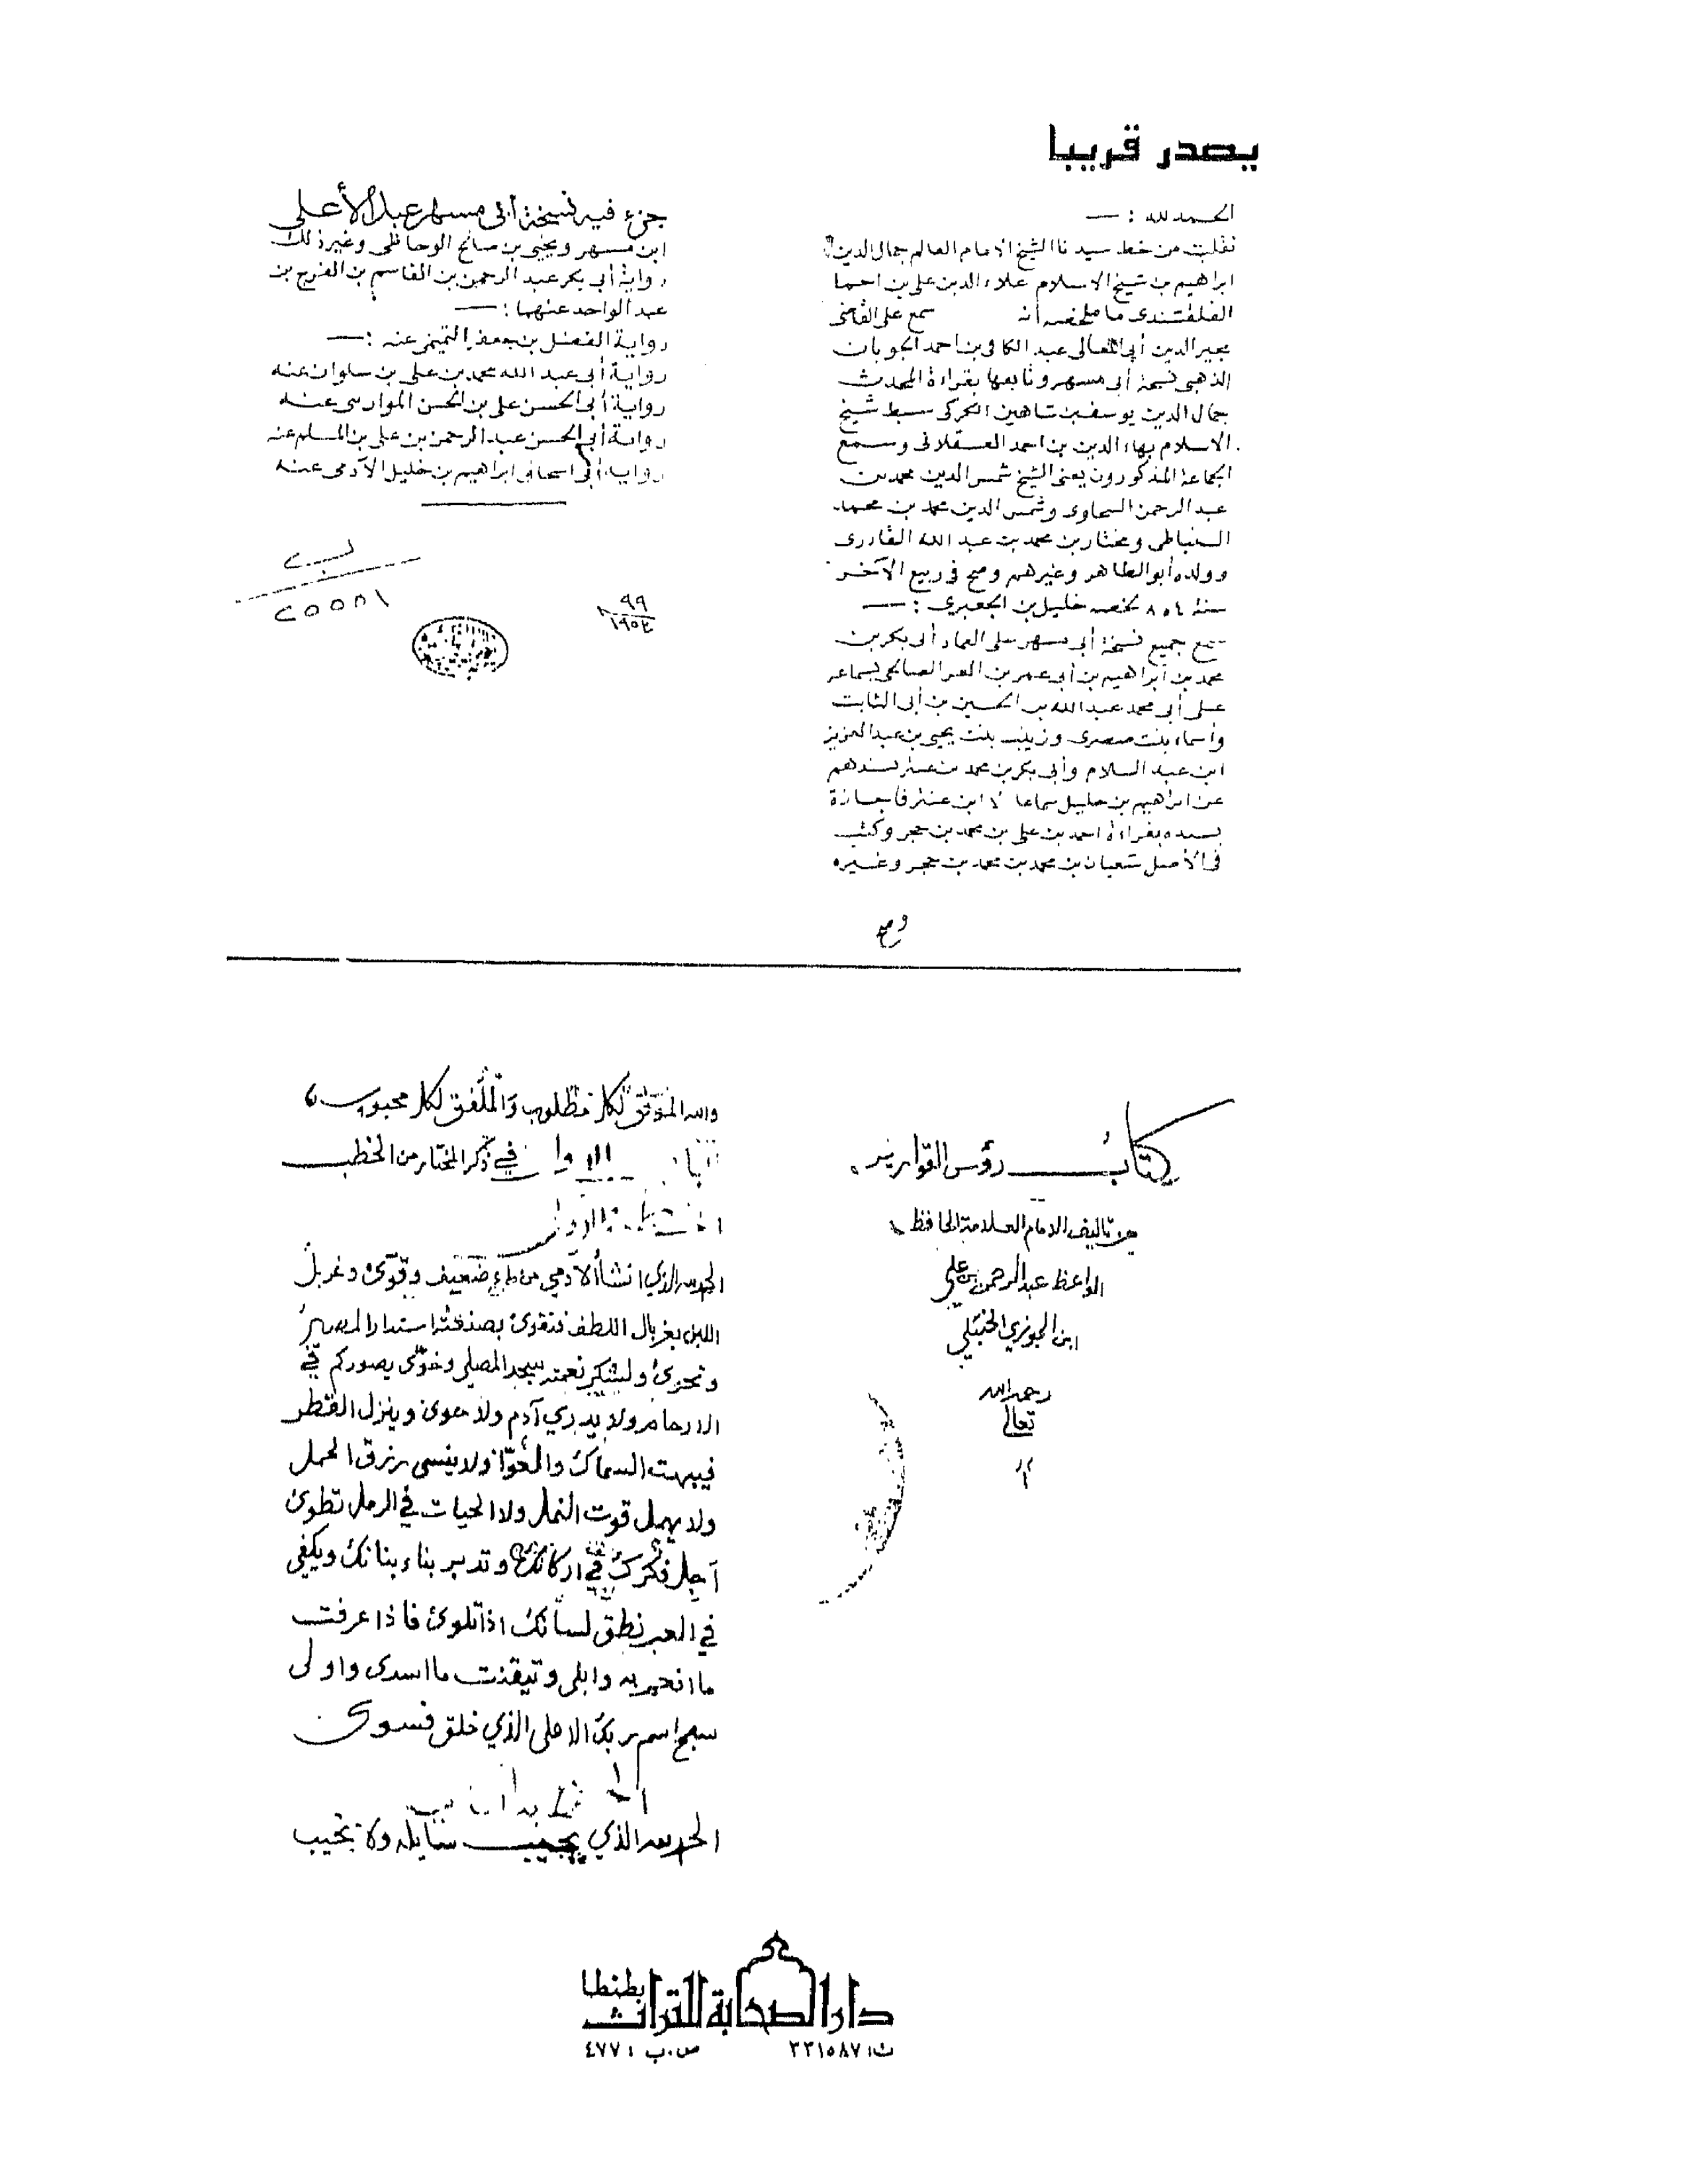 يصدر قريبا
الحمد لله : —
نقلت من خط سيدنا الشيخ الامام العالم جمال الدين
ابراهيم بن شيخ الاسلام علاء الدين على بن احمد
القلقشندى ما ملخصه انه سمع على القاضى
مجير الدين أبى المعالى عبد الكافى بن احمد الجوبان
الذهبى نسخة أبى مسهر وتابعها بقراءة المحدث
جمال الدين يوسف بن شاهين الكركى سبط شيخ
الاسلام بهاء الدين بن احمد العسقلانى وسمع
الجماعة المذكورون يعنى الشيخ شمس الدين محمد بن
عبد الرحمن السخاوى وشمس الدين محمد بن محمد
السنباطى ومختار بن محمد بن عبد الله القادرى
وولده أبو الطاهر وغيرهم وصح فى ربيع الآخر
سنة ٨٥٤ لخصه خليل بن الجعبري : —
سمع جميع نسخة أبى مسهر على العماد أبى بكر بن
محمد بن ابراهيم بن أبى عمر بن العز الصالحى بسماعه
على أبى محمد عبد الله بن الحسين بن أبى الثابت
وأسماء بنت صصرى وزينب بنت يحيى بن عبد العزيز
ابن عبد السلام وأبى بكر بن محمد بن عنتر بسندهم
عن ابراهيم بن خليل سماعا لا ابن عنتر فاجازة
بسنده بقراءة احمد بن على بن محمد بن حجر وكتب
فى الأصل شعبان بن محمد بن محمد بن حجر وغيره
وصح
جزء فيه نسخة أبى مسهر عبد الأعلى
ابن مسهر ويحيى بن صالح الوحاظى وغير ذلك
رواية أبى بكر عبد الرحمن بن القاسم بن الفرج بن
عبد الواحد عنهما : —
رواية الفضل بن جعفر التميمى عنه : —
رواية أبى عبد الله محمد بن على بن سلوان عنه
رواية أبى الحسن على بن الحسن الموازينى عنه
رواية أبى الحسن عبد الرحمن بن على بن المسلم عنه
رواية أبى اسحاق ابراهيم بن خليل الآدمى عنه
٢٥٥٥١
٩٩
كتاب رؤس القوارير
من تاليف الامام العلامة الحافظ
الواعظ عبد الرحمن بن علي
ابن الجوزي الحنبلي
رحمه الله
تعالى
والله الموفق لكل مطلوب والملفق لكل محبوب
الباب الاول في ذكر المختار من الخطب
الخطبة الاولى
الحمد لله الذي انشأ الآدمي من ماء ضعيف وقوى وغربل
اللبن بغربال اللطف فتقوى
وتحوى وليشكر نعمته سجد المصلي وخوى يصوركم في
الارحام ولا يدري آدم ولا حوى وينزل القطر
فيبهت السماك والعوا ولا ينسى رزق الحمل
ولا يهمل قوت النمل ولا الحيات في الرمل تطوى
اجل فكرك في اركانك وتدبر بناء بنانك ويكفي
في العبر نطق لسانك اذا تلوى فاذا عرفت
ما انعم به وابلى وتيقنت ما اسدى واولى
سبح اسم ربك الاعلى الذي خلق فسوى
الخطبة الثانية
الحمد لله الذي يجيب سايله ولا يخيب
دار الصحابة للتراث
بطنطا
ت: ٣٣١٥٨٧ ص.ب : ٤٧٧